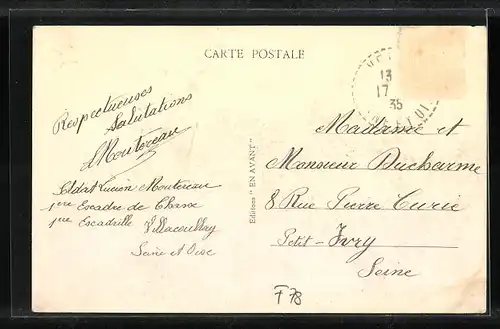 CARTE POSTALE
13
17
35
Respectueuses
Salutations
LMoutereau
Editions "EN AVANT"
Soldat Lucien Moutereau
1ère Escadre de Chasse
1ère Escadrille Villacoublay
Seine et Oise
Madame et
Monsieur Ducharme
8 Rue Pierre Curie
Petit-Ivry
Seine
F78